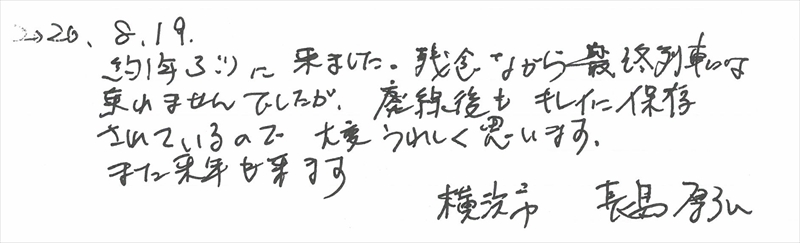 2020. 8. 19.
約1年ぶりに来ました。残念ながら最終列車には
乗れませんでしたが、廃線後も キレイに保存
されているので 大変うれしく思います。
また来年も来ます
横浜市 長島 厚弘